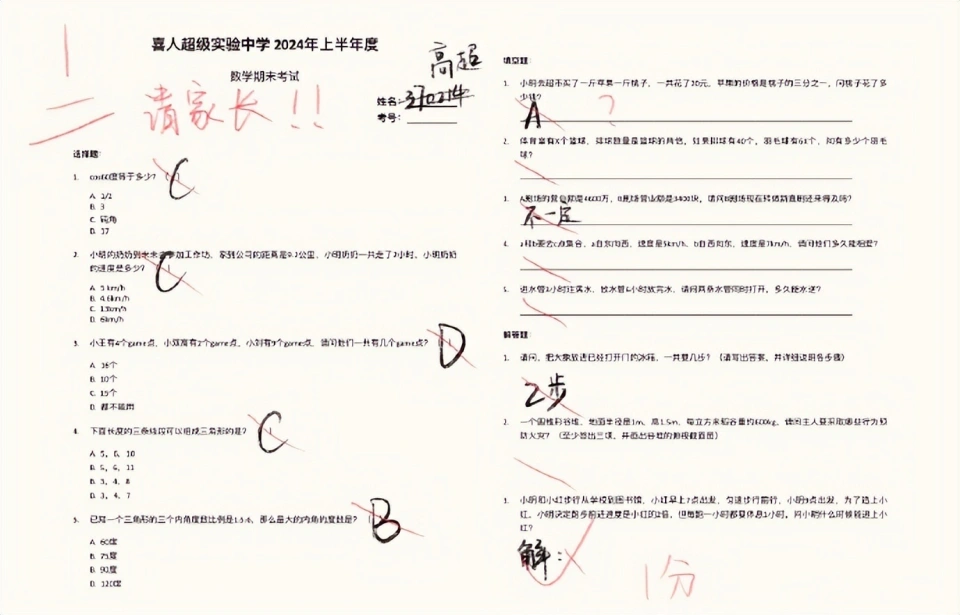 喜人超级实验中学 2024年上半年度
数学期末考试
高超
姓名:
考号:
请家长!!
选择题:
1. cos60度等于多少? C
A. 1/2
B. 3
C. 钝角
D. 17
2. 小明的奶奶到未来去参加工作坊,家到公司的距离是9.2公里,小明奶奶一共走了2小时,小明奶奶
的速度是多少? C
A. 5 km/h
B. 4.6km/h
C. 13km/h
D. 6km/h
3. 小王有4个game点,小双高有2个game点,小刘有9个game点,请问他们一共有几个game点? D
A. 16个
B. 10个
C. 15个
D. 都不能用
4. 下面长度的三条线段可以组成三角形的是? C
A. 5,6,10
B. 5,6,11
C. 3,4,8
D. 3,4,7
5. 已知一个三角形的三个内角度数比例是1:5:6,那么最大的内角的度数是? B
A. 60度
B. 75度
C. 90度
D. 120度
填空题:
1. 小明去超市买了一斤苹果一斤桃子,一共花了20元,苹果的价格是桃子的三分之一,问桃子花了多
少钱?
A ?
2. 体育室有X个篮球,排球数量是篮球的两倍,如果排球有40个,羽毛球有6X个,问有多少个羽毛
球?
3. A剧场的营业额是4600万,B剧场营业额是3400块,请问B剧场现在转体制喜剧还来得及吗?
不一定
4. a和b要去c点集合,a自东向西,速度是5km/h,b自西向东,速度是7km/h,请问他们多久能相遇?
5. 进水管3小时注满水,放水管6小时放完水,请问两条水管同时打开,多久能水逆?
解答题:
1. 请问,把大象放进已经打开门的冰箱,一共要几步?(请写出答案,并详细说明各步骤)
2步
2. 一个圆锥形谷堆,地面半径是1m,高1.5m,每立方米稻谷重约600kg,请问主人要采取哪些行为预
防火灾?(至少答出三项,并画出谷堆的俯视截面图)
3. 小明和小红步行从学校到图书馆,小红早上7点出发,匀速步行前行,小明9点出发,为了追上小
红,小明决定跑步前进速度是小红的2倍,但每跑一小时都要休息1小时,问小明什么时候能追上小
红?
解:
1分